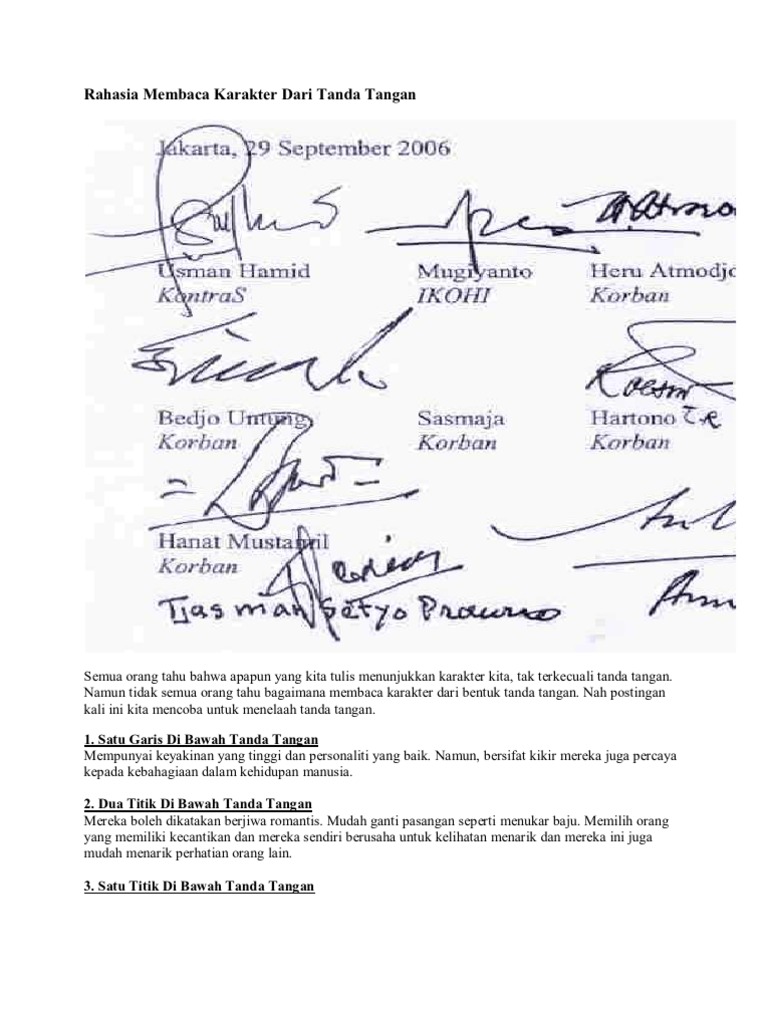 Rahasia Membaca Karakter Dari Tanda Tangan
Jakarta, 29 September 2006
Usman Hamid Mugiyanto Heru Atmodjo
KontraS IKOHI Korban
Bedjo Untung Sasmaja Hartono T.R
Korban Korban Korban
Hanat Mustamil
Korban
Tjasman Setyo Prawiro
Semua orang tahu bahwa apapun yang kita tulis menunjukkan karakter kita, tak terkecuali tanda tangan.
Namun tidak semua orang tahu bagaimana membaca karakter dari bentuk tanda tangan. Nah postingan
kali ini kita mencoba untuk menelaah tanda tangan.
1. Satu Garis Di Bawah Tanda Tangan
Mempunyai keyakinan yang tinggi dan personaliti yang baik. Namun, bersifat kikir mereka juga percaya
kepada kebahagiaan dalam kehidupan manusia.
2. Dua Titik Di Bawah Tanda Tangan
Mereka boleh dikatakan berjiwa romantis. Mudah ganti pasangan seperti menukar baju. Memilih orang
yang memiliki kecantikan dan mereka sendiri berusaha untuk kelihatan menarik dan mereka ini juga
mudah menarik perhatian orang lain.
3. Satu Titik Di Bawah Tanda Tangan